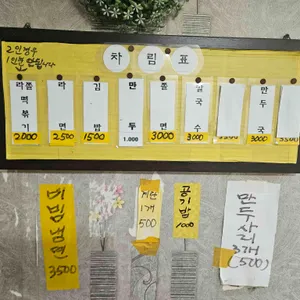 2인경우
1인분 안됩니다
차림표
라쫄
떡볶기
2000
라면
2500
김밥
1500
만두
1.000
쫄면
3000
칼국수
3000
만두국
3000
3500
비빔냉면
3500
계란
1개
500
공기밥
1000
만두사리
3개
(500)